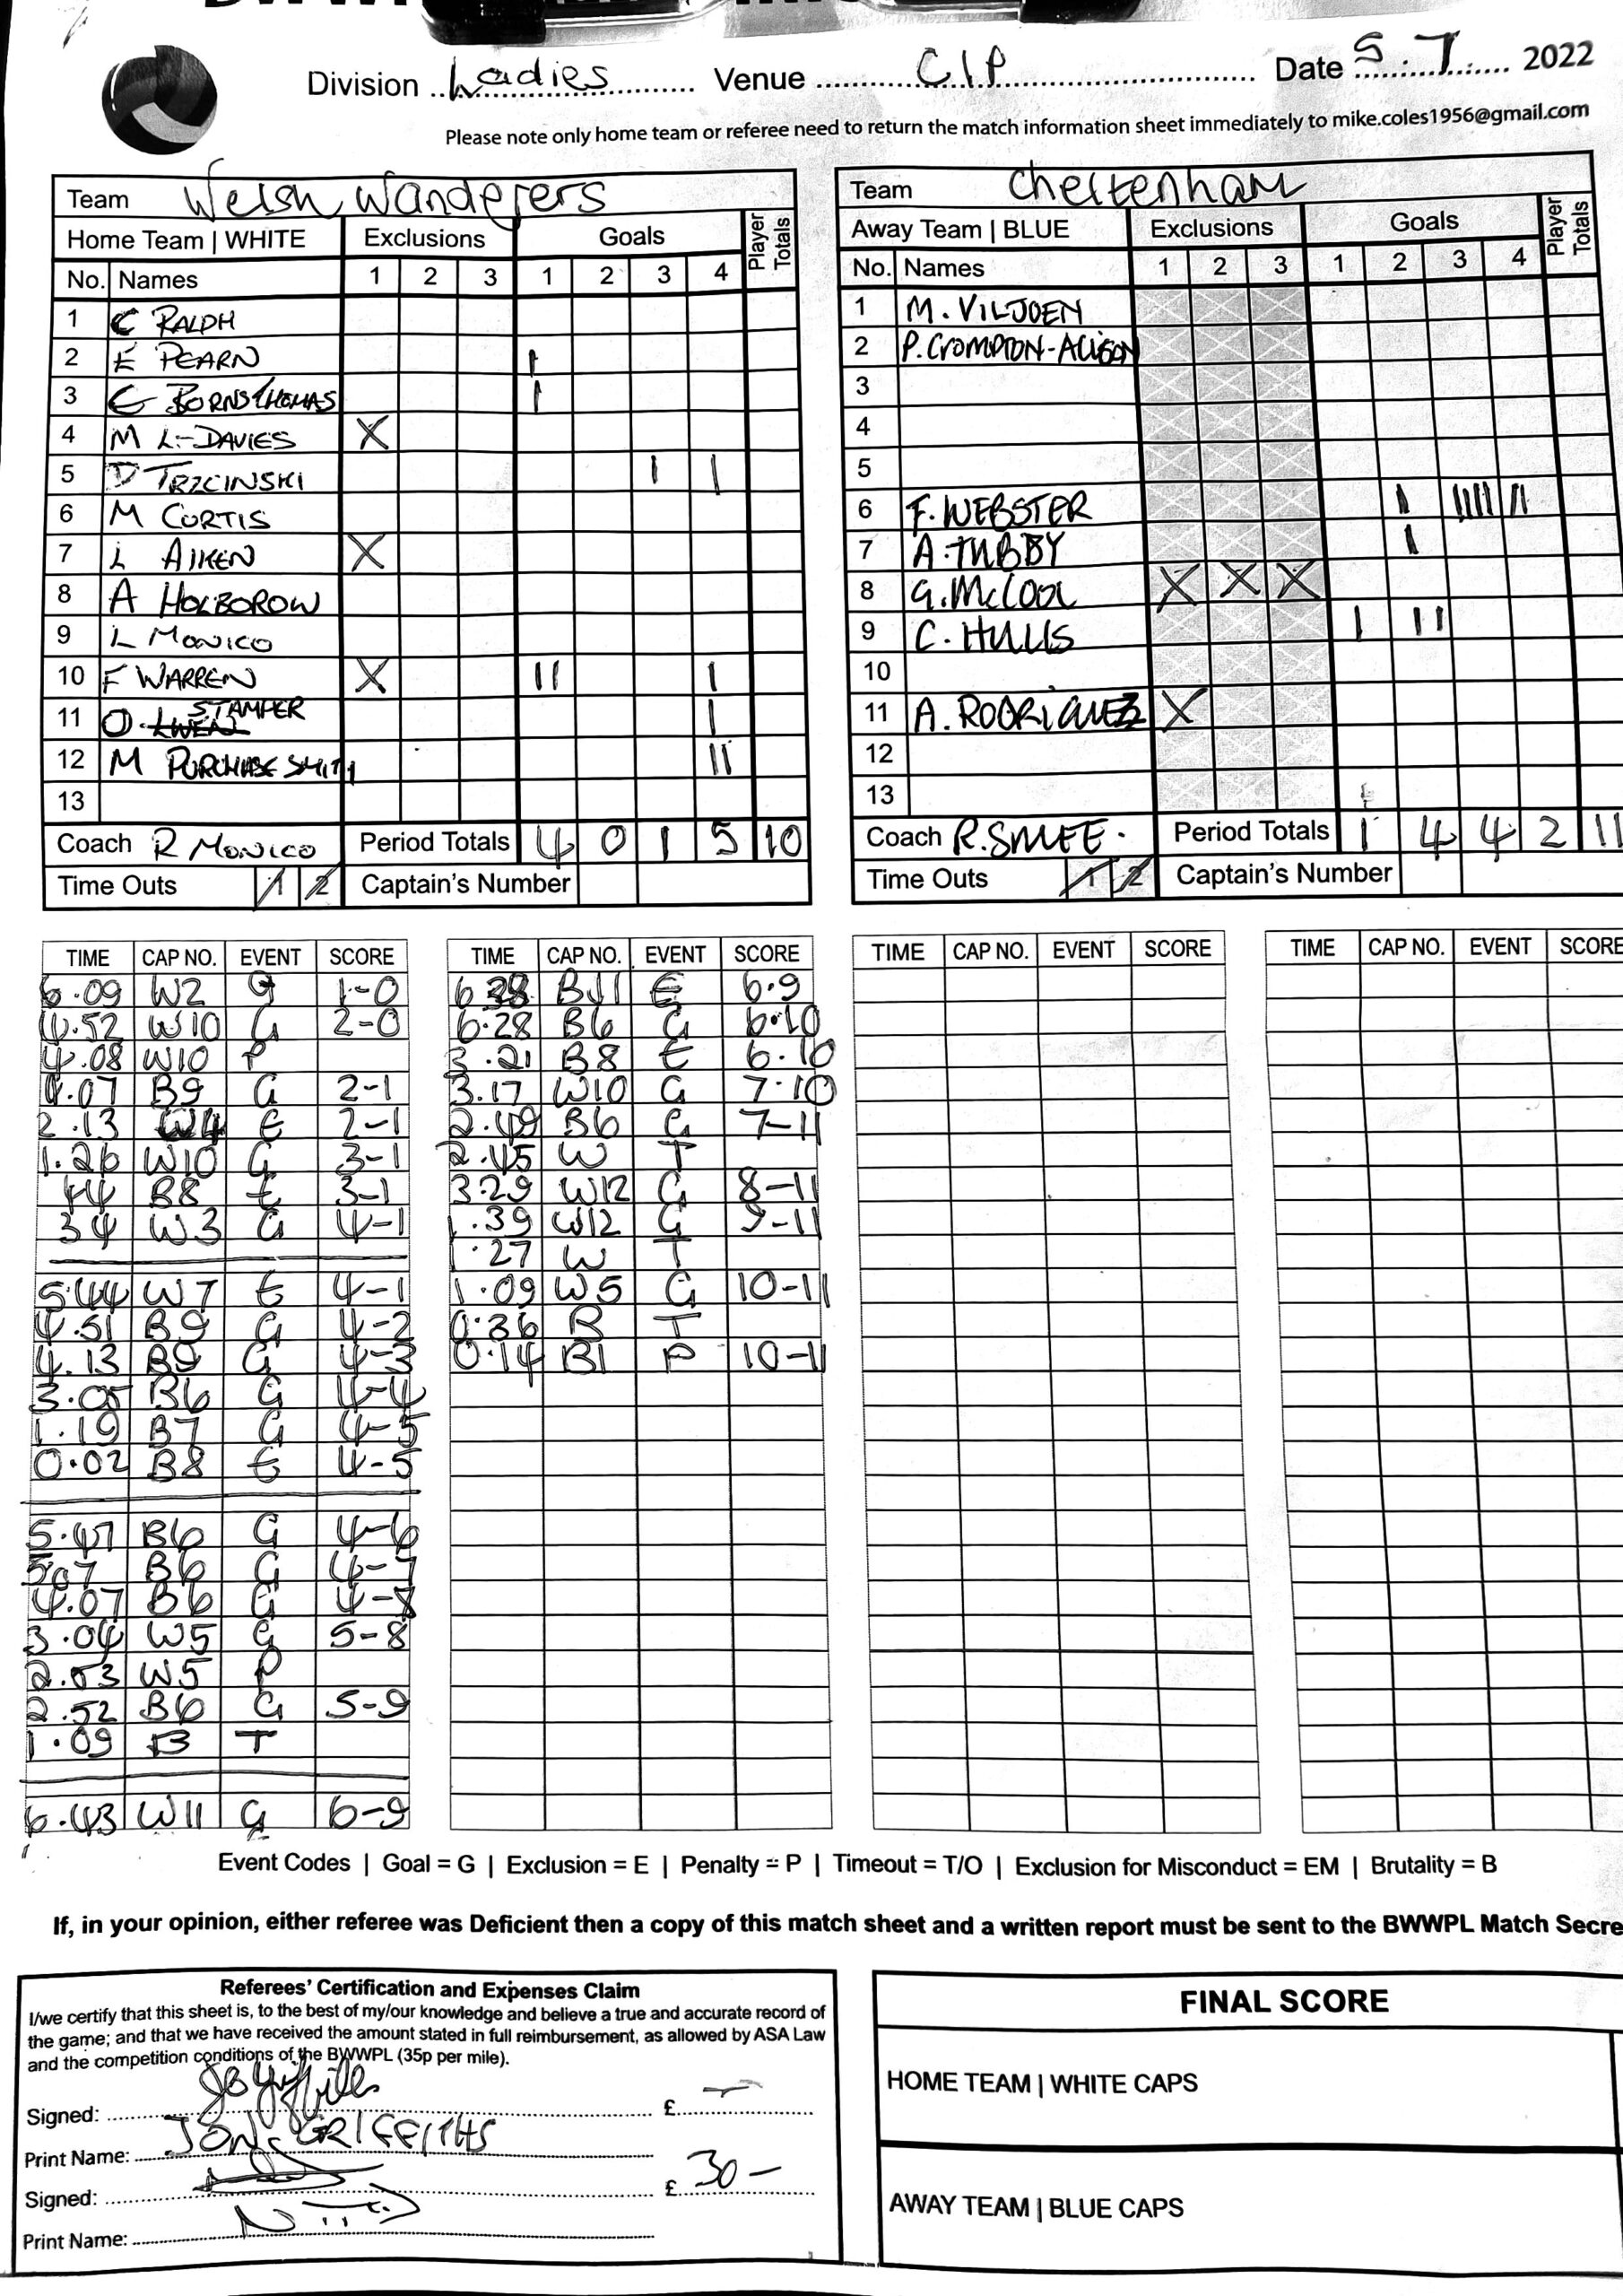 Division Ladies Venue C.I.P Date 5.7 2022
Please note only home team or referee need to return the match information sheet immediately to mike.coles1956@gmail.com
Team Welsh Wanderers
Home Team | WHITE Exclusions Goals Player Totals
No. Names 1 2 3 1 2 3 4
1 C RALPH
2 E PEARN I
3 C BORNSTHOMAS I
4 M L-DAVIES X
5 D TRZCINSKI I I
6 M CURTIS
7 L AIKEN X
8 A HOLBOROW
9 L MONICO
10 F WARREN X II I
11 O. STAMPER I
12 M PURCHASE SMITH II
13
Coach R MONICO Period Totals 4 0 1 5 10
Time Outs 1 2 Captain's Number
Team Cheltenham
Away Team | BLUE Exclusions Goals Player Totals
No. Names 1 2 3 1 2 3 4
1 M. VILJOEN
2 P. CROMPTON-ALISON
3
4
5
6 F. WEBSTER I IIII II
7 A. TUBBY I
8 G. McCOOL X X X
9 C. HULLS I II
10
11 A. RODRIGUEZ X
12
13
Coach R. SMEE. Period Totals 1 4 4 2 11
Time Outs 1 2 Captain's Number
TIME CAP NO. EVENT SCORE
6.09 W2 G 1-0
4.52 W10 G 2-0
4.08 W10 P
4.07 B9 G 2-1
2.13 W4 E 2-1
1.26 W10 G 3-1
44 B8 E 3-1
34 W3 G 4-1
5.44 W7 E 4-1
4.51 B9 G 4-2
4.13 B9 G 4-3
3.05 B6 G 4-4
1.19 B7 G 4-5
0.02 B8 E 4-5
5.47 B6 G 4-6
5.07 B6 G 4-7
4.07 B6 G 4-8
3.04 W5 G 5-8
2.53 W5 P
2.52 B6 G 5-9
1.09 B T
6.43 W11 G 6-9
TIME CAP NO. EVENT SCORE
6.28 B11 E 6.9
6.28 B6 G 6.10
3.21 B8 E 6.10
3.17 W10 G 7.10
2.49 B6 G 7-11
2.45 W T
3.29 W12 G 8-11
1.39 W12 G 9-11
1.27 W T
1.09 W5 G 10-11
0.36 B T
0.14 B1 P 10-11
TIME CAP NO. EVENT SCORE
TIME CAP NO. EVENT SCORE
Event Codes | Goal = G | Exclusion = E | Penalty = P | Timeout = T/O | Exclusion for Misconduct = EM | Brutality = B
If, in your opinion, either referee was Deficient then a copy of this match sheet and a written report must be sent to the BWWPL Match Secre
Referees' Certification and Expenses Claim
I/we certify that this sheet is, to the best of my/our knowledge and believe a true and accurate record of
the game; and that we have received the amount stated in full reimbursement, as allowed by ASA Law
and the competition conditions of the BWWPL (35p per mile).
Signed: £ —
Print Name: JON GRIFFITHS
Signed: £ 30 –
Print Name:
FINAL SCORE
HOME TEAM | WHITE CAPS
AWAY TEAM | BLUE CAPS